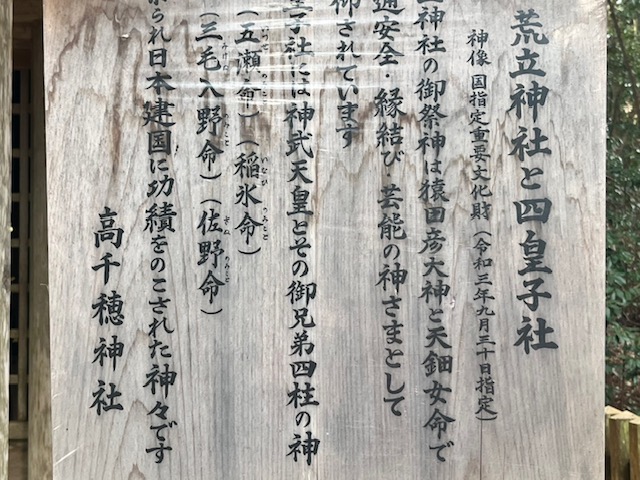 荒立神社と四皇子社
神像 国指定重要文化財（令和三年九月三十日指定）
神社の御祭神は猿田彦大神と天鈿女命で
安全・縁結び・芸能の神さまとして
仰されています
皇子社には神武天皇とその御兄弟四柱の神
（五瀬命）（稲氷命）
（三毛入野命）（佐野命）
られ日本建国に功績をのこされた神々です
高千穂神社